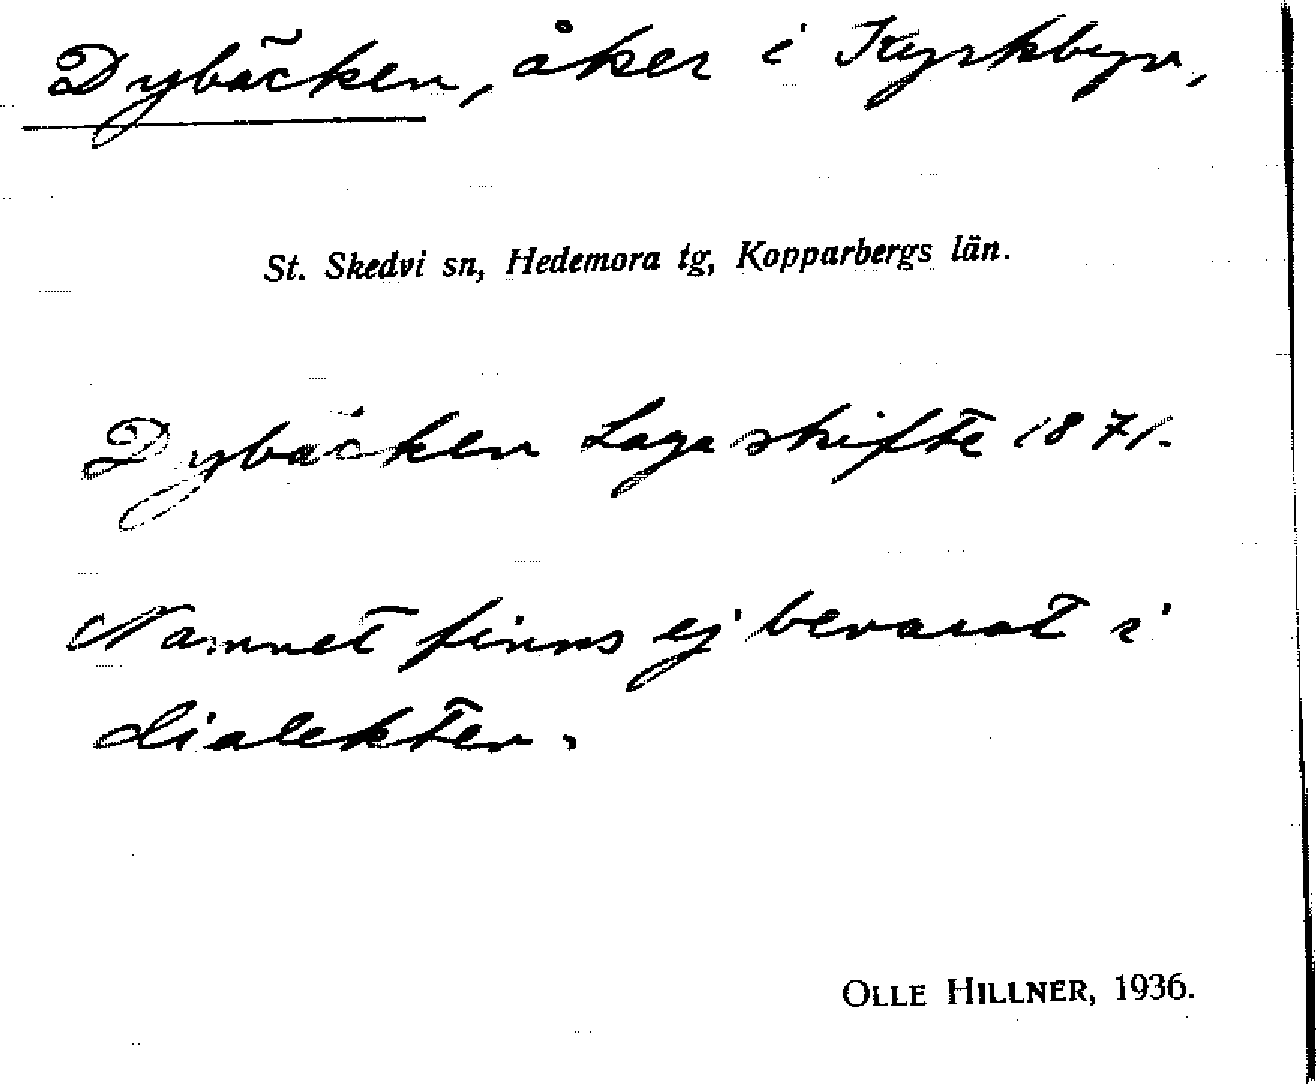 Dybäcken, åker i Kyrkbyn,
St. Skedvi sn, Hedemora tg, Kopparbergs län.
Dybäcken Laga skifte 1871.
Namnet finns ej bevarat i
dialekten.
OLLE HILLNER, 1936.